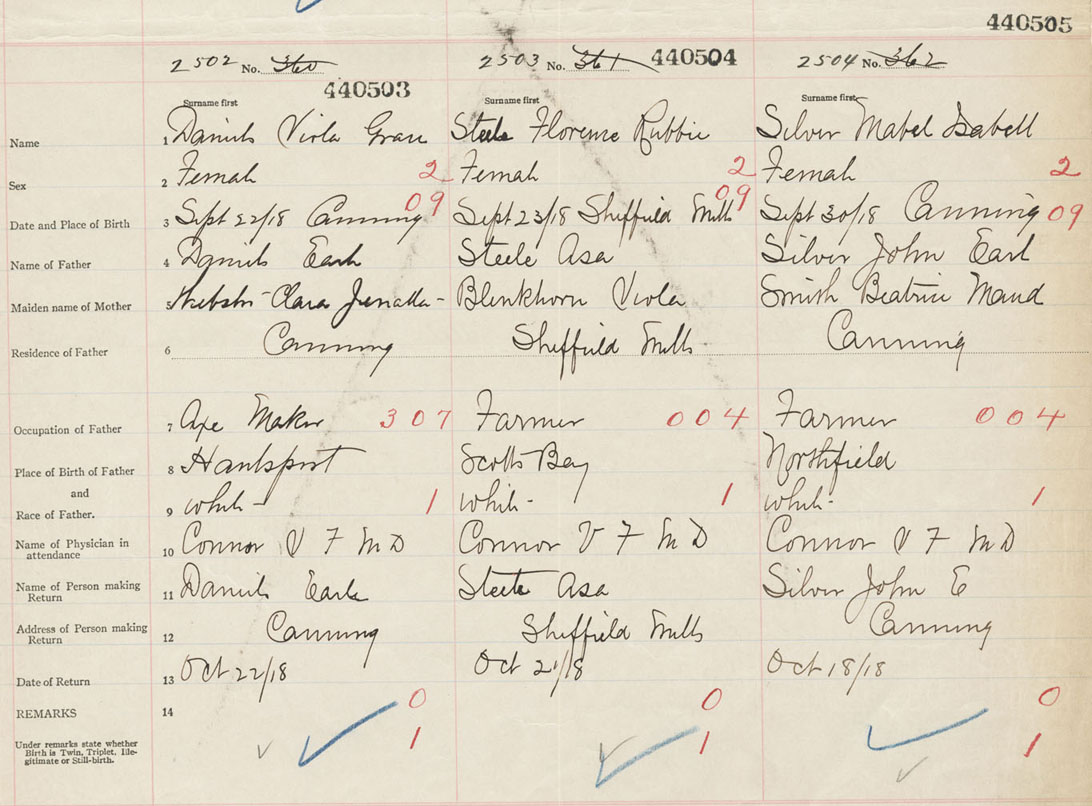 440505
2502 No. 360 2503 No. 361 440504 2504 No. 362
440503
Surname first Surname first Surname first
Name 1 Daniels Viola Grace Steele Florence Rubbie Silver Mabel Isabell
Sex 2 Female 2 Female 2 Female 2
09 09
Date and Place of Birth 3 Sept 22/18 Canning Sept 23/18 Sheffield Mills Sept 30/18 Canning 09
Name of Father 4 Daniels Earle Steele Asa Silver John Earl
Maiden name of Mother 5 Clara Blenkhorn Viola Smith Beatrice Maud
Residence of Father 6 Canning Sheffield Mills Canning
Occupation of Father 7 Axe Maker 307 Farmer 004 Farmer 004
Place of Birth of Father 8 Hantsport Scotts Bay Northfield
and
Race of Father. 9 White 1 White 1 White 1
Name of Physician in
attendance 10 Connor V F M D Connor V F M D Connor V F M D
Name of Person making
Return 11 Daniels Earle Steele Asa Silver John E
Address of Person making
Return 12 Canning Sheffield Mills Canning
Date of Return 13 Oct 22/18 Oct 21/18 Oct 18/18
REMARKS 14 0 0 0
Under remarks state whether
Birth is Twin, Triplet, Ille-
gitimate or Still-birth. 1 1 1